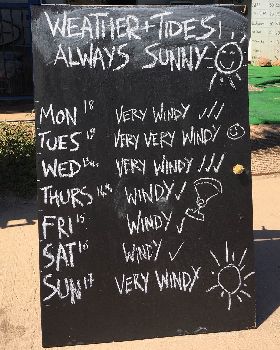 WEATHER + TIDES
ALWAYS SUNNY
MON 18 VERY WINDY ✓✓✓
TUES 19 VERY VERY WINDY
WED VERY WINDY ✓✓✓
THURS WINDY ✓
FRI 15 WINDY ✓
SAT 16 WINDY ✓
SUN 17 VERY WINDY